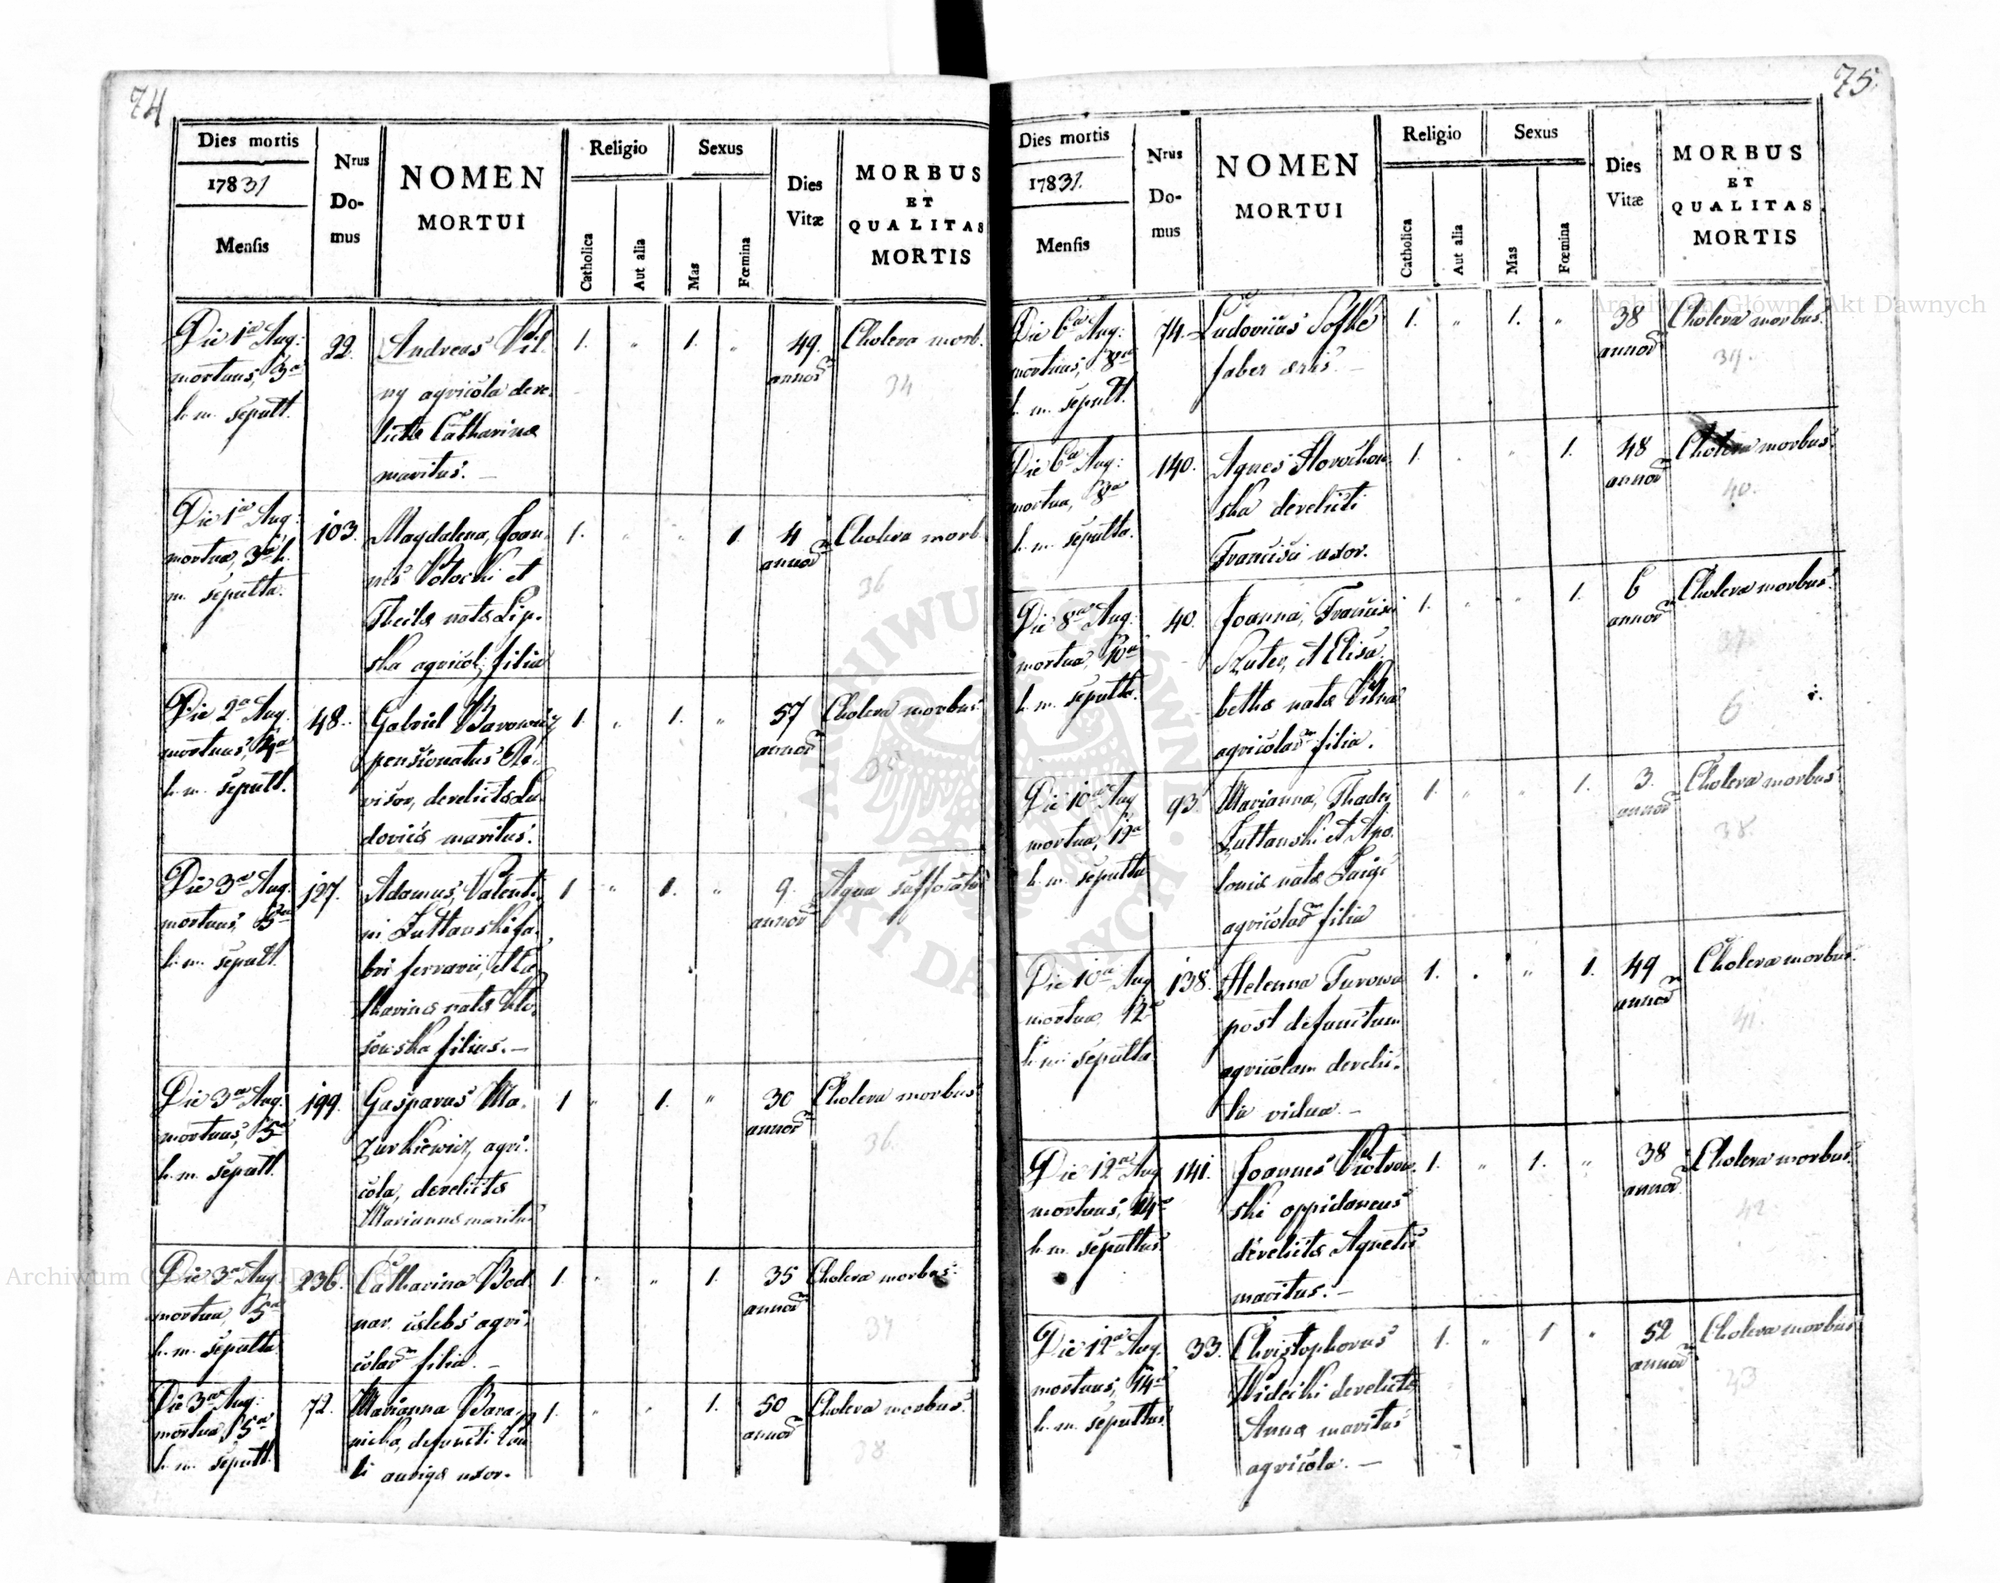 74
Dies mortis
17831
Mensis
Nrus
Do-
mus
NOMEN
MORTUI
Religio
Catholica
Aut alia
Sexus
Mas
Fœmina
Dies
Vitæ
MORBUS
ET
QUALITAS
MORTIS
Die 1a Aug:
mortuus, 3a
h. m. sepult.
22.
Andreas
ny agricola dere-
lictæ Catharinæ
maritus. —
1. " 1. "
49.
annorum
Cholera morb.
34
Die 1a Aug:
mortua, 3a h.
m. sepulta.
103.
Magdalena, Joan-
nis Potocki et
Theclæ natæ Lip-
ska agricol: filia
1. " " 1.
4
annorum
Cholera morb.
36
Die 2a Aug.
mortuus, 4a
h. m. sepult.
48.
Gabriel
pensionatus Re-
visor, derelictæ Lu-
dovicæ maritus.
1. " 1. "
57
annorum
Cholera morbus.
35
Die 3a Aug.
mortuus, 5a
h. m. sepult.
127.
Adamus, Valenti-
ni Zuttanski fa-
bri ferrarii, et Ca-
tharinæ natæ
sowska filius. —
1 " 1. "
9.
annorum
Aqua suffocatus
Die 3a Aug:
mortuus, 5a
h. m. sepult.
199.
Gasparus Ma-
zurkiewicz, agri-
cola, derelictæ
Mariannæ maritus
1 " 1. "
30
annorum
Cholera morbus
36.
Die 3a Aug.
mortua, 5a
h. m. sepulta
236.
Catharina Bod-
nar cælebs agri-
colarum filia. —
1. " " 1.
35
annorum
Cholera morbus.
37
Die 3a Aug:
mortua, 5a
h. m. sepult.
72.
Marianna Bara-
nicha, defuncti
aurigæ uxor.
1. " " 1.
50
annorum
Cholera morbus.
38
75
Dies mortis
17831.
Mensis
Nrus
Do-
mus
NOMEN
MORTUI
Religio
Catholica
Aut alia
Sexus
Mas
Fœmina
Dies
Vitæ
MORBUS
ET
QUALITAS
MORTIS
Die 6a Aug:
mortuus, 8va
h. m. sepult.
74.
Ludovicus
faber æris. —
1. " 1. "
38
annorum
Cholera morbus.
39.
Die 6a Aug:
mortua, 8va
h. m. sepulta.
140.
Agnes
ska derelicti
Francisci uxor.
1. " " 1.
48
annorum
Cholera morbus.
40.
Die 8a Aug:
mortua, 10a
h. m. sepulta.
40.
Joanna, Francisci
et Elisa-
bethæ natæ
agricolarum filia.
1. " " 1.
6
annorum
Cholera morbus.
37.
6
Die 10a Aug
mortua, 12a
h. m. sepulta
93.
Marianna, Thadei
Zuttanski et Apo-
loniæ natæ
agricolarum filia
1. " " 1.
3.
annorum
Cholera morbus
38
Die 10a Aug
mortua, 12a
h. m. sepulta
138.
Helenna Turowa
post defunctum
agricolam derelic-
ta vidua. —
1. " " 1.
49
annorum
Cholera morbus.
41.
Die 12a Aug
mortuus, 14a
h. m. sepultus.
141.
Joannes Piotrow-
ski oppidaneus
derelictæ Agnetis
maritus. —
1. " 1. "
38
annorum
Cholera morbus.
42.
Die 12a Aug.
mortuus, 14a
h. m. sepultus.
33.
Christophorus
Widecki derelictæ
Annæ maritus
agricola. —
1. " 1 "
52
annorum
Cholera morbus.
43
Archiwum Główne Akt Dawnych
ARCHIWUM GŁÓWNE AKT DAWNYCH